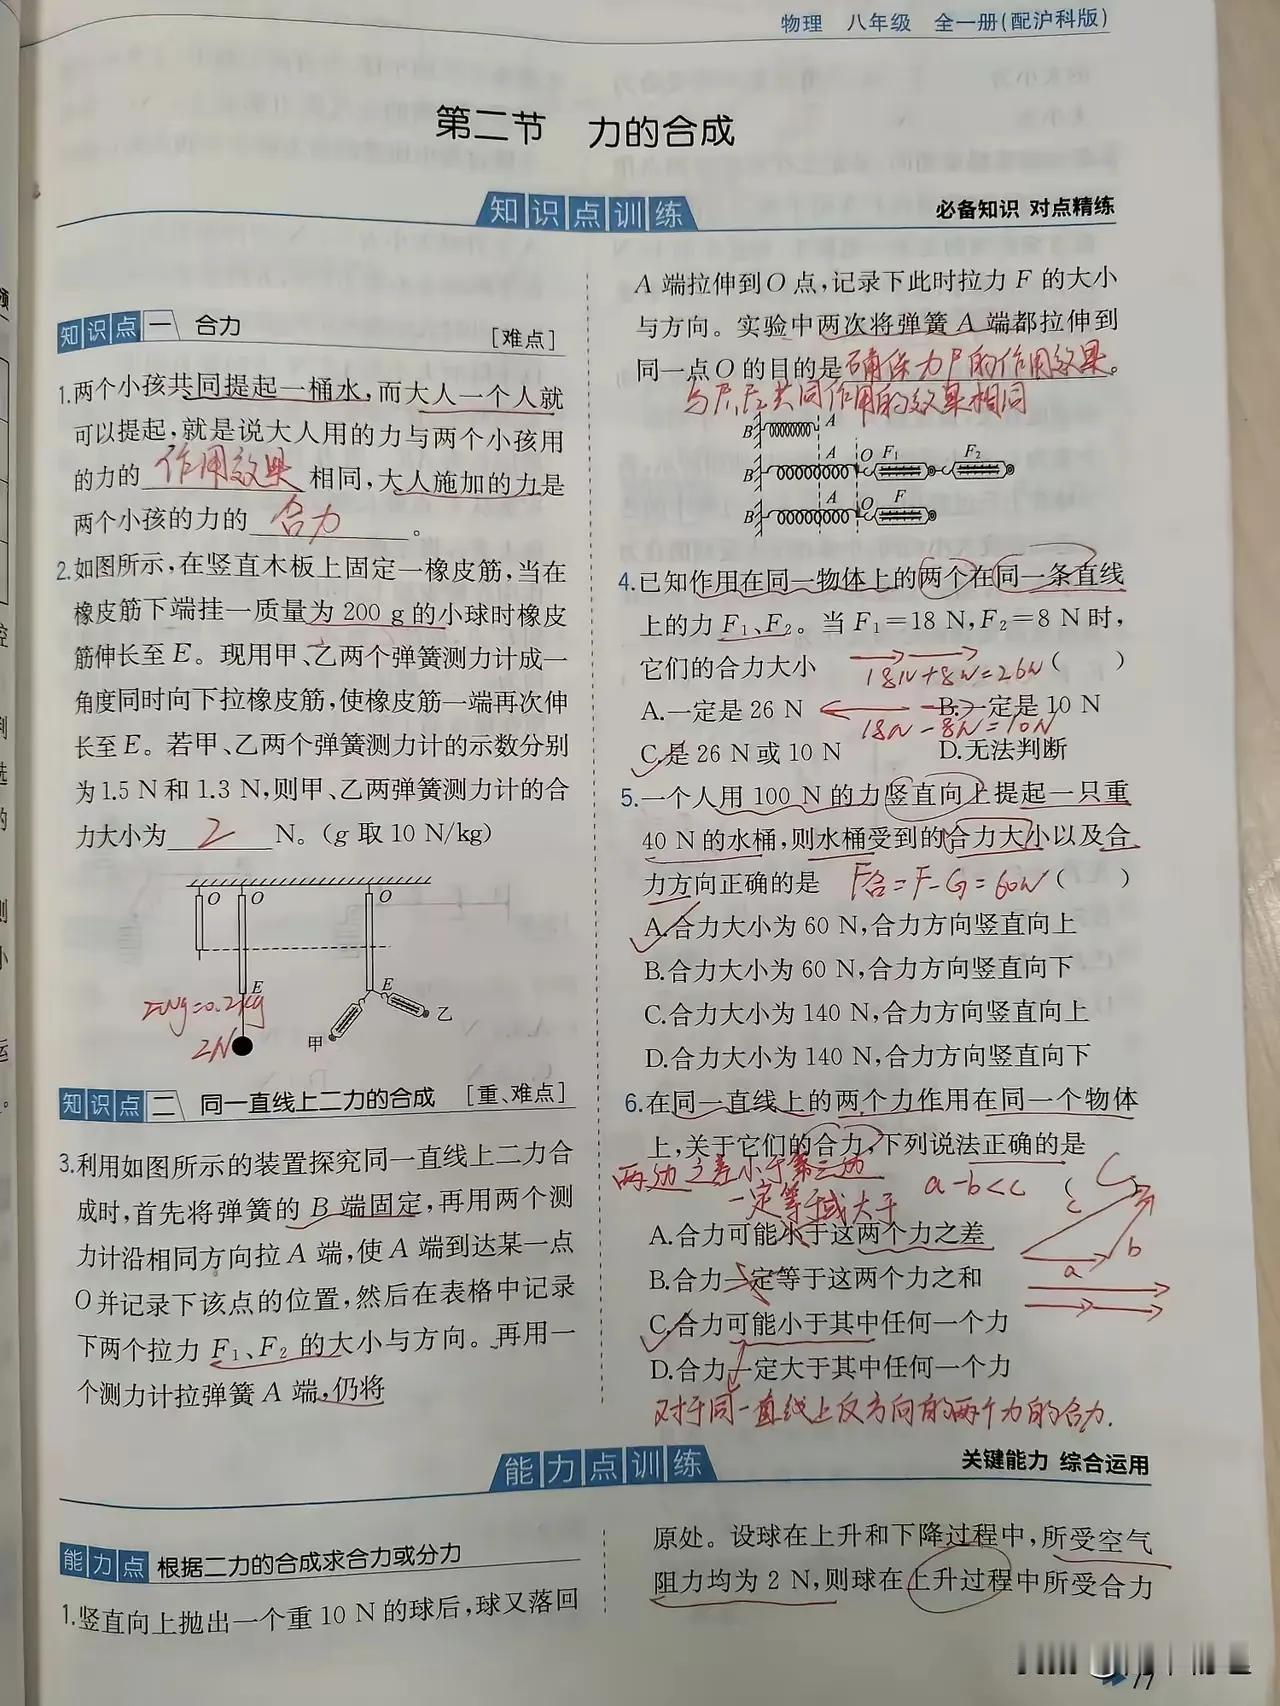 物理 八年级 全一册(配沪科版)
第二节 力的合成
知识点训练
必备知识 对点精练
知识点一 合力 [难点]
1.两个小孩共同提起一桶水,而大人一个人就
可以提起,就是说大人用的力与两个小孩用
的力的 作用效果 相同,大人施加的力是
两个小孩的力的 合力 。
2.如图所示,在竖直木板上固定一橡皮筋,当在
橡皮筋下端挂一质量为 200 g 的小球时橡皮
筋伸长至 E。现用甲、乙两个弹簧测力计成一
角度同时向下拉橡皮筋,使橡皮筋一端再次伸
长至 E。若甲、乙两个弹簧测力计的示数分别
为 1.5 N 和 1.3 N,则甲、乙两弹簧测力计的合
力大小为 2 N。(g 取 10 N/kg)
O O O
E E
=0.2kg
乙
甲
2N
知识点二 同一直线上二力的合成 [重、难点]
3.利用如图所示的装置探究同一直线上二力合
成时,首先将弹簧的 B 端固定,再用两个测
力计沿相同方向拉 A 端,使 A 端到达某一点
O 并记录下该点的位置,然后在表格中记录
下两个拉力 F₁、F₂ 的大小与方向。再用一
个测力计拉弹簧 A 端,仍将
A 端拉伸到 O 点,记录下此时拉力 F 的大小
与方向。实验中两次将弹簧 A 端都拉伸到
同一点 O 的目的是 确保力F的作用效果。
与F₁F₂共同作用的效果相同
B A
B A O F₁ F₂
B A O F
4.已知作用在同一物体上的两个在同一条直线
上的力 F₁、F₂。当 F₁=18 N,F₂=8 N 时,
它们的合力大小 18N+8N=26N ( )
A.一定是 26 N B.一定是 10 N
18N-8N=10N
C.是 26 N 或 10 N D.无法判断
5.一个人用 100 N 的力竖直向上提起一只重
40 N 的水桶,则水桶受到的合力大小以及合
力方向正确的是 F合=F-G=60N ( )
A.合力大小为 60 N,合力方向竖直向上
B.合力大小为 60 N,合力方向竖直向下
C.合力大小为 140 N,合力方向竖直向上
D.合力大小为 140 N,合力方向竖直向下
6.在同一直线上的两个力作用在同一个物体
上,关于它们的合力,下列说法正确的是
两边之差小于第三边 a-b<c ( C )
一定等于或大于 c
A.合力可能小于这两个力之差
b
a
B.合力一定等于这两个力之和
C.合力可能小于其中任何一个力
D.合力一定大于其中任何一个力
对于同一直线上反方向的两个力的合力.
能力点训练
关键能力 综合运用
能力点 根据二力的合成求合力或分力
1.竖直向上抛出一个重 10 N 的球后,球又落回
原处。设球在上升和下降过程中,所受空气
阻力均为 2 N,则球在上升过程中所受合力
77